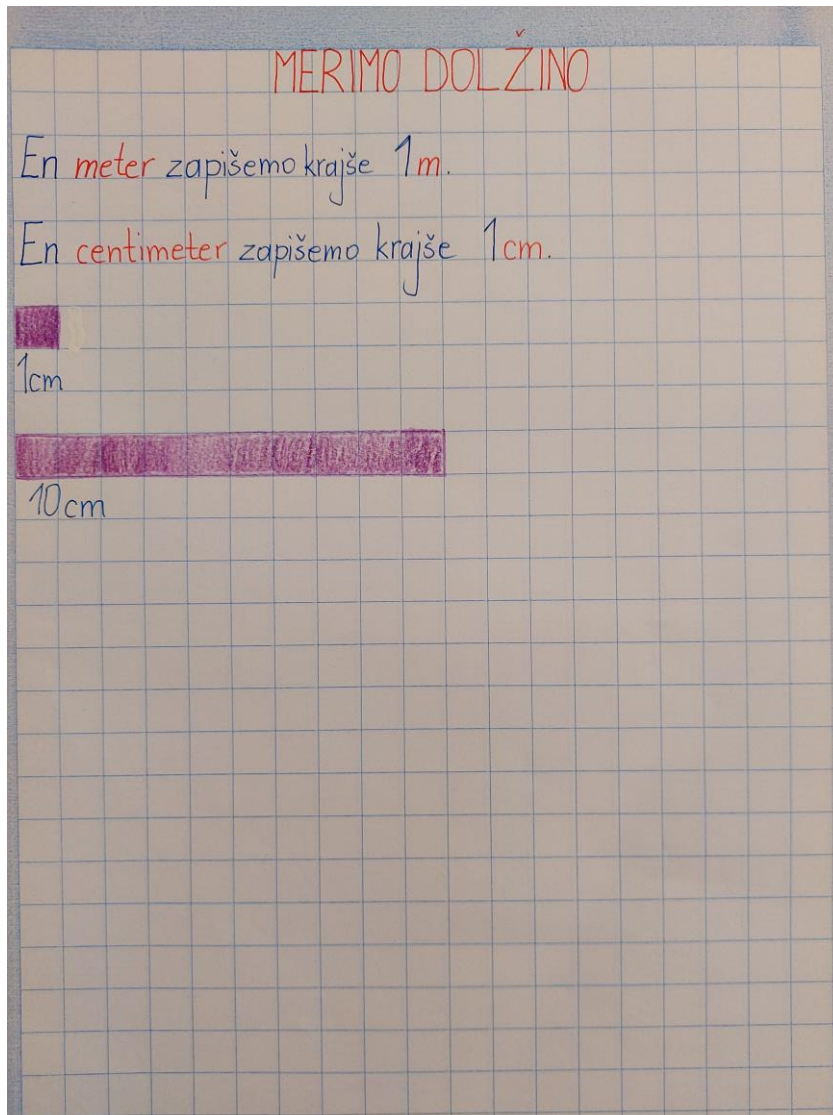 MERIMO DOLŽINO
En meter zapišemo krajše 1m.
En centimeter zapišemo krajše 1cm.
1cm
10cm